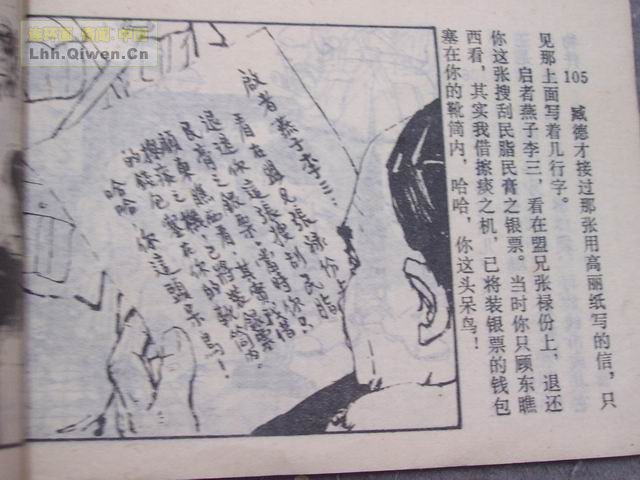 连环画·新闻·中国
Lhh.Qiwen.Cn
105 臧德才接过那张用高丽纸写的信，只
见那上面写着几行字。
启者燕子李三，看在盟兄张禄份上，退还
你这张搜刮民脂民膏之银票。当时你只顾东瞧
西看，其实我借擦痰之机，已将装银票的钱包
塞在你的靴筒内，哈哈，你这头呆鸟！
启者燕子李三：
看在盟兄张禄份上
退还你這張搜刮民脂
民膏之銀票。當時你只
顧東瞧西看，其實我借
擦痰之機，已將装銀票
的錢包塞在你的靴筒内。
哈哈，你這頭呆鸟！